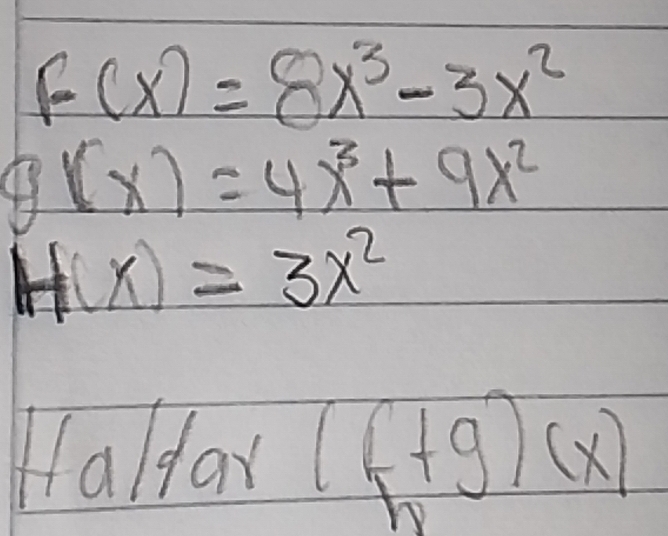 F(x) = 8x³ - 3x²
g(x) = 4x³ + 9x²
H(x) = 3x²
Hallar (f+g)(x)
h